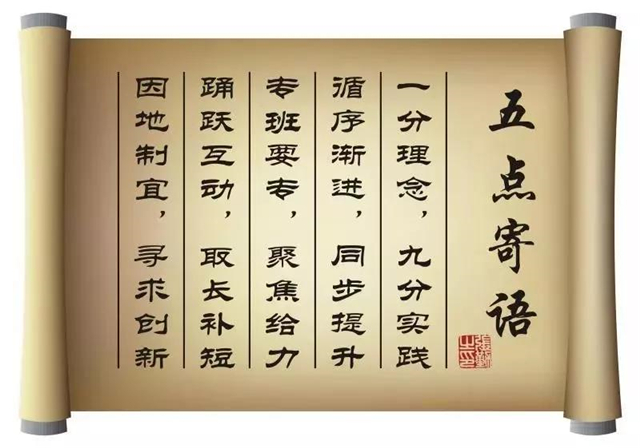 五点寄语
一分理念，九分实践
循序渐进，同步提升
专班要专，聚焦给力
踊跃互动，取长补短
因地制宜，寻求创新